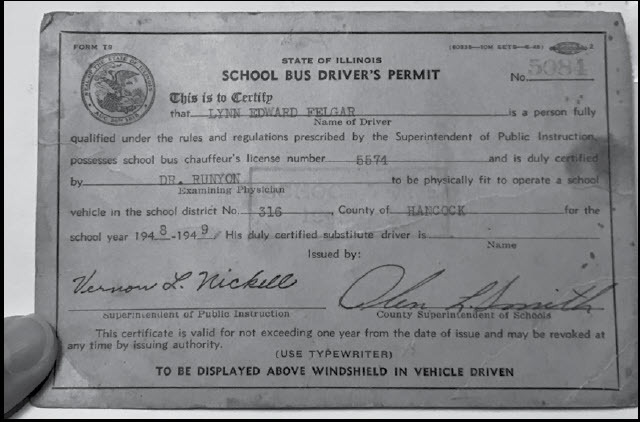 FORM T8
STATE OF ILLINOIS
SCHOOL BUS DRIVER'S PERMIT
No. 5084
This is to Certify
that LYNN EDWARD FELGAR is a person fully
Name of Driver
qualified under the rules and regulations prescribed by the Superintendent of Public Instruction,
possesses school bus chauffeur's license number 5574 and is duly certified
by DR. RUNYON to be physically fit to operate a school
Examining Physician
vehicle in the school district No. 316, County of HANCOCK for the
school year 1948-1949/ His duly certified substitute driver is
Name
Issued by:
Vernon L. Nickell
Olen L. Smith
Superintendent of Public Instruction
County Superintendent of Schools
This certificate is valid for not exceeding one year from the date of issue and may be revoked at
any time by issuing authority.
(USE TYPEWRITER)
TO BE DISPLAYED ABOVE WINDSHIELD IN VEHICLE DRIVEN